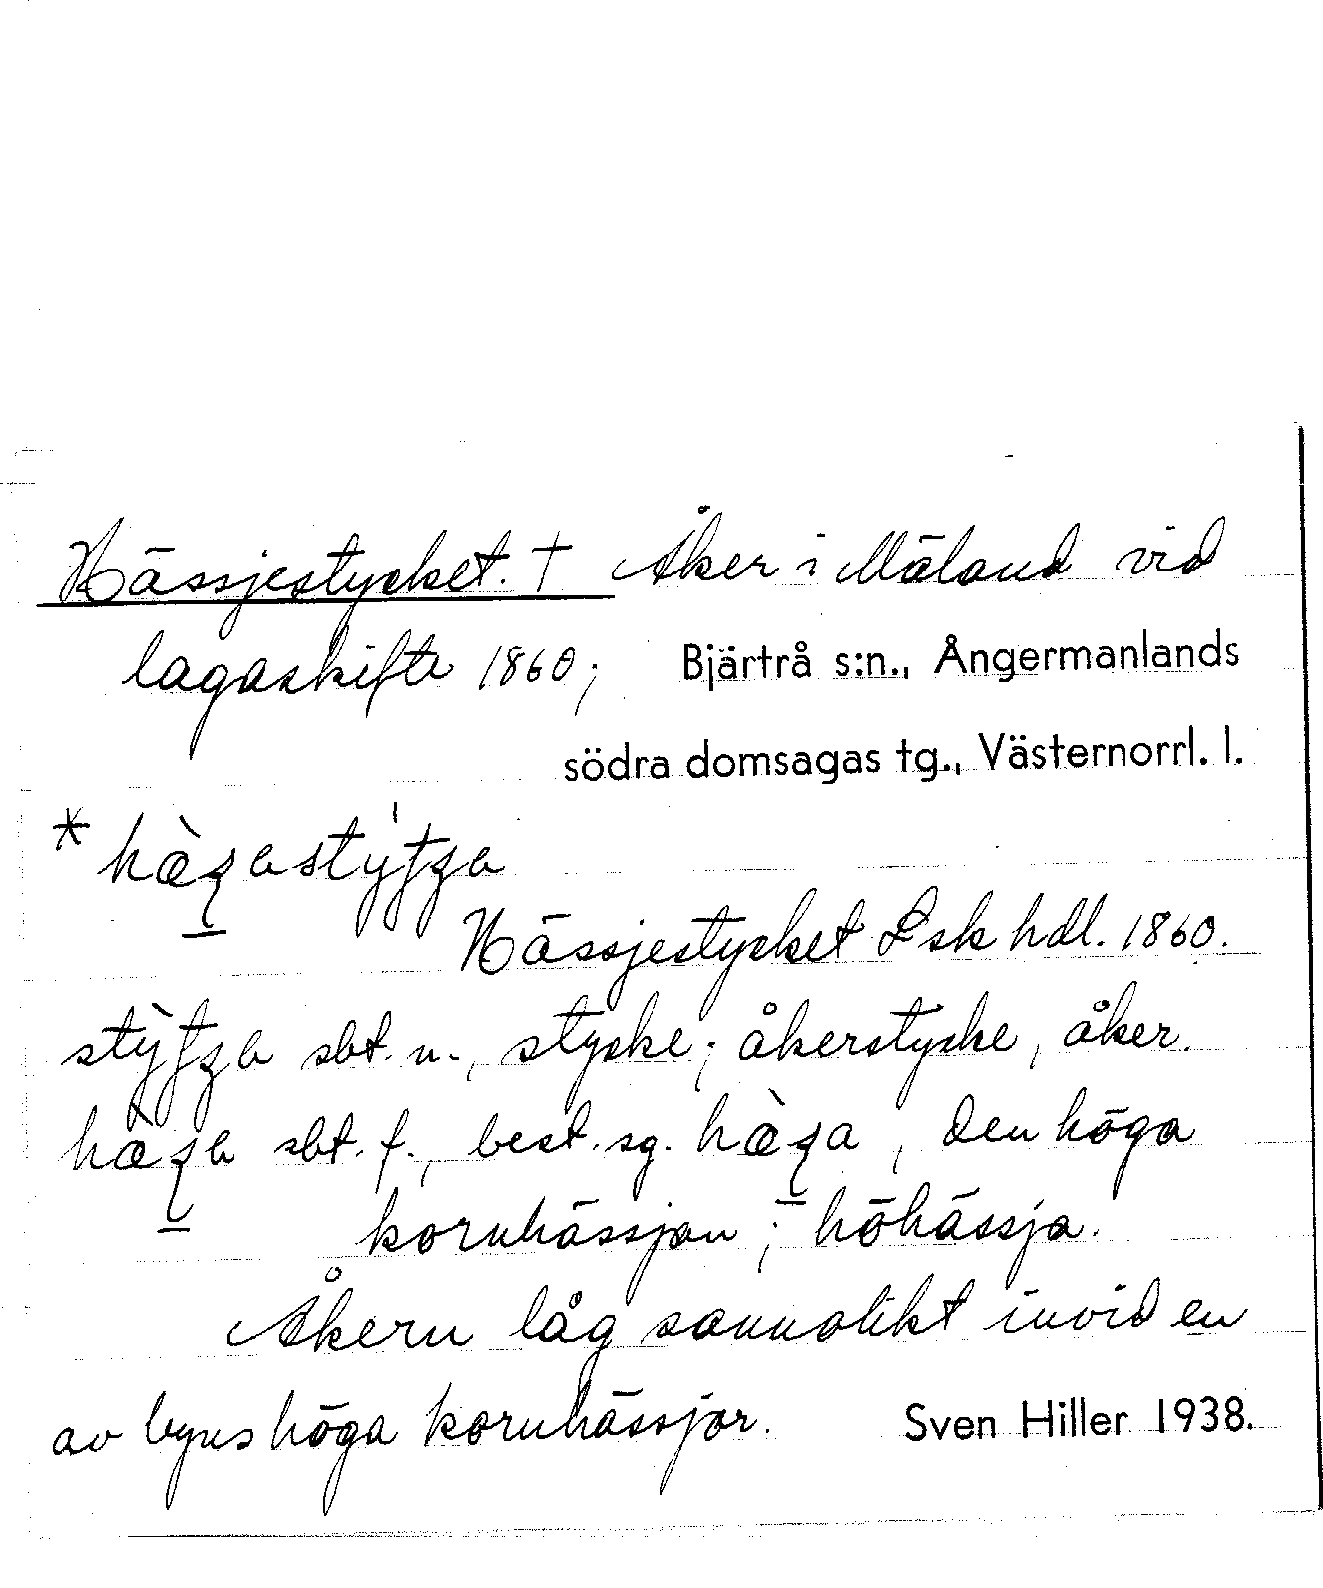 Hässjestycket. † Åker i Mäland vid
lagaskifte 1860; Bjärtrå s:n., Ångermanlands
södra domsagas tg., Västernorrl. l.
Hässjestycket Lsk hdl. 1860.
sbt. n., stycke; åkerstycke, åker.
sbt. f., best. sg. , den höga
kornhässjan; höhässja.
Åkern låg sannolikt invid en
av byns höga kornhässjor. Sven Hiller 1938.